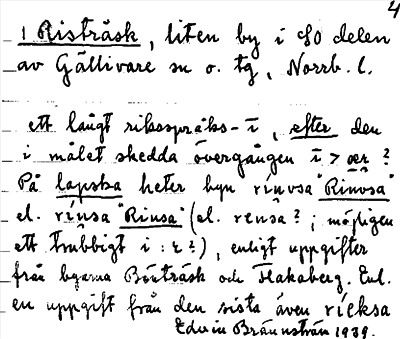 4
1 Risträsk, liten by i SO delen
av Gällivare sn o. tg, Norrb. l.
ett långt riksspråks-ī, efter den
i målet skedda övergången ī > ær ?
På lapska heter byn rinvsa "Rinvsa"
el. rínsa "Rinsa" (el. rensa? ; möjligen
ett trubbigt i : ?), enligt uppgifter
från byarna Börträsk och Hakaberg. Enl.
en uppgift från den sista även ricksa
Edvin Brännström 1939.